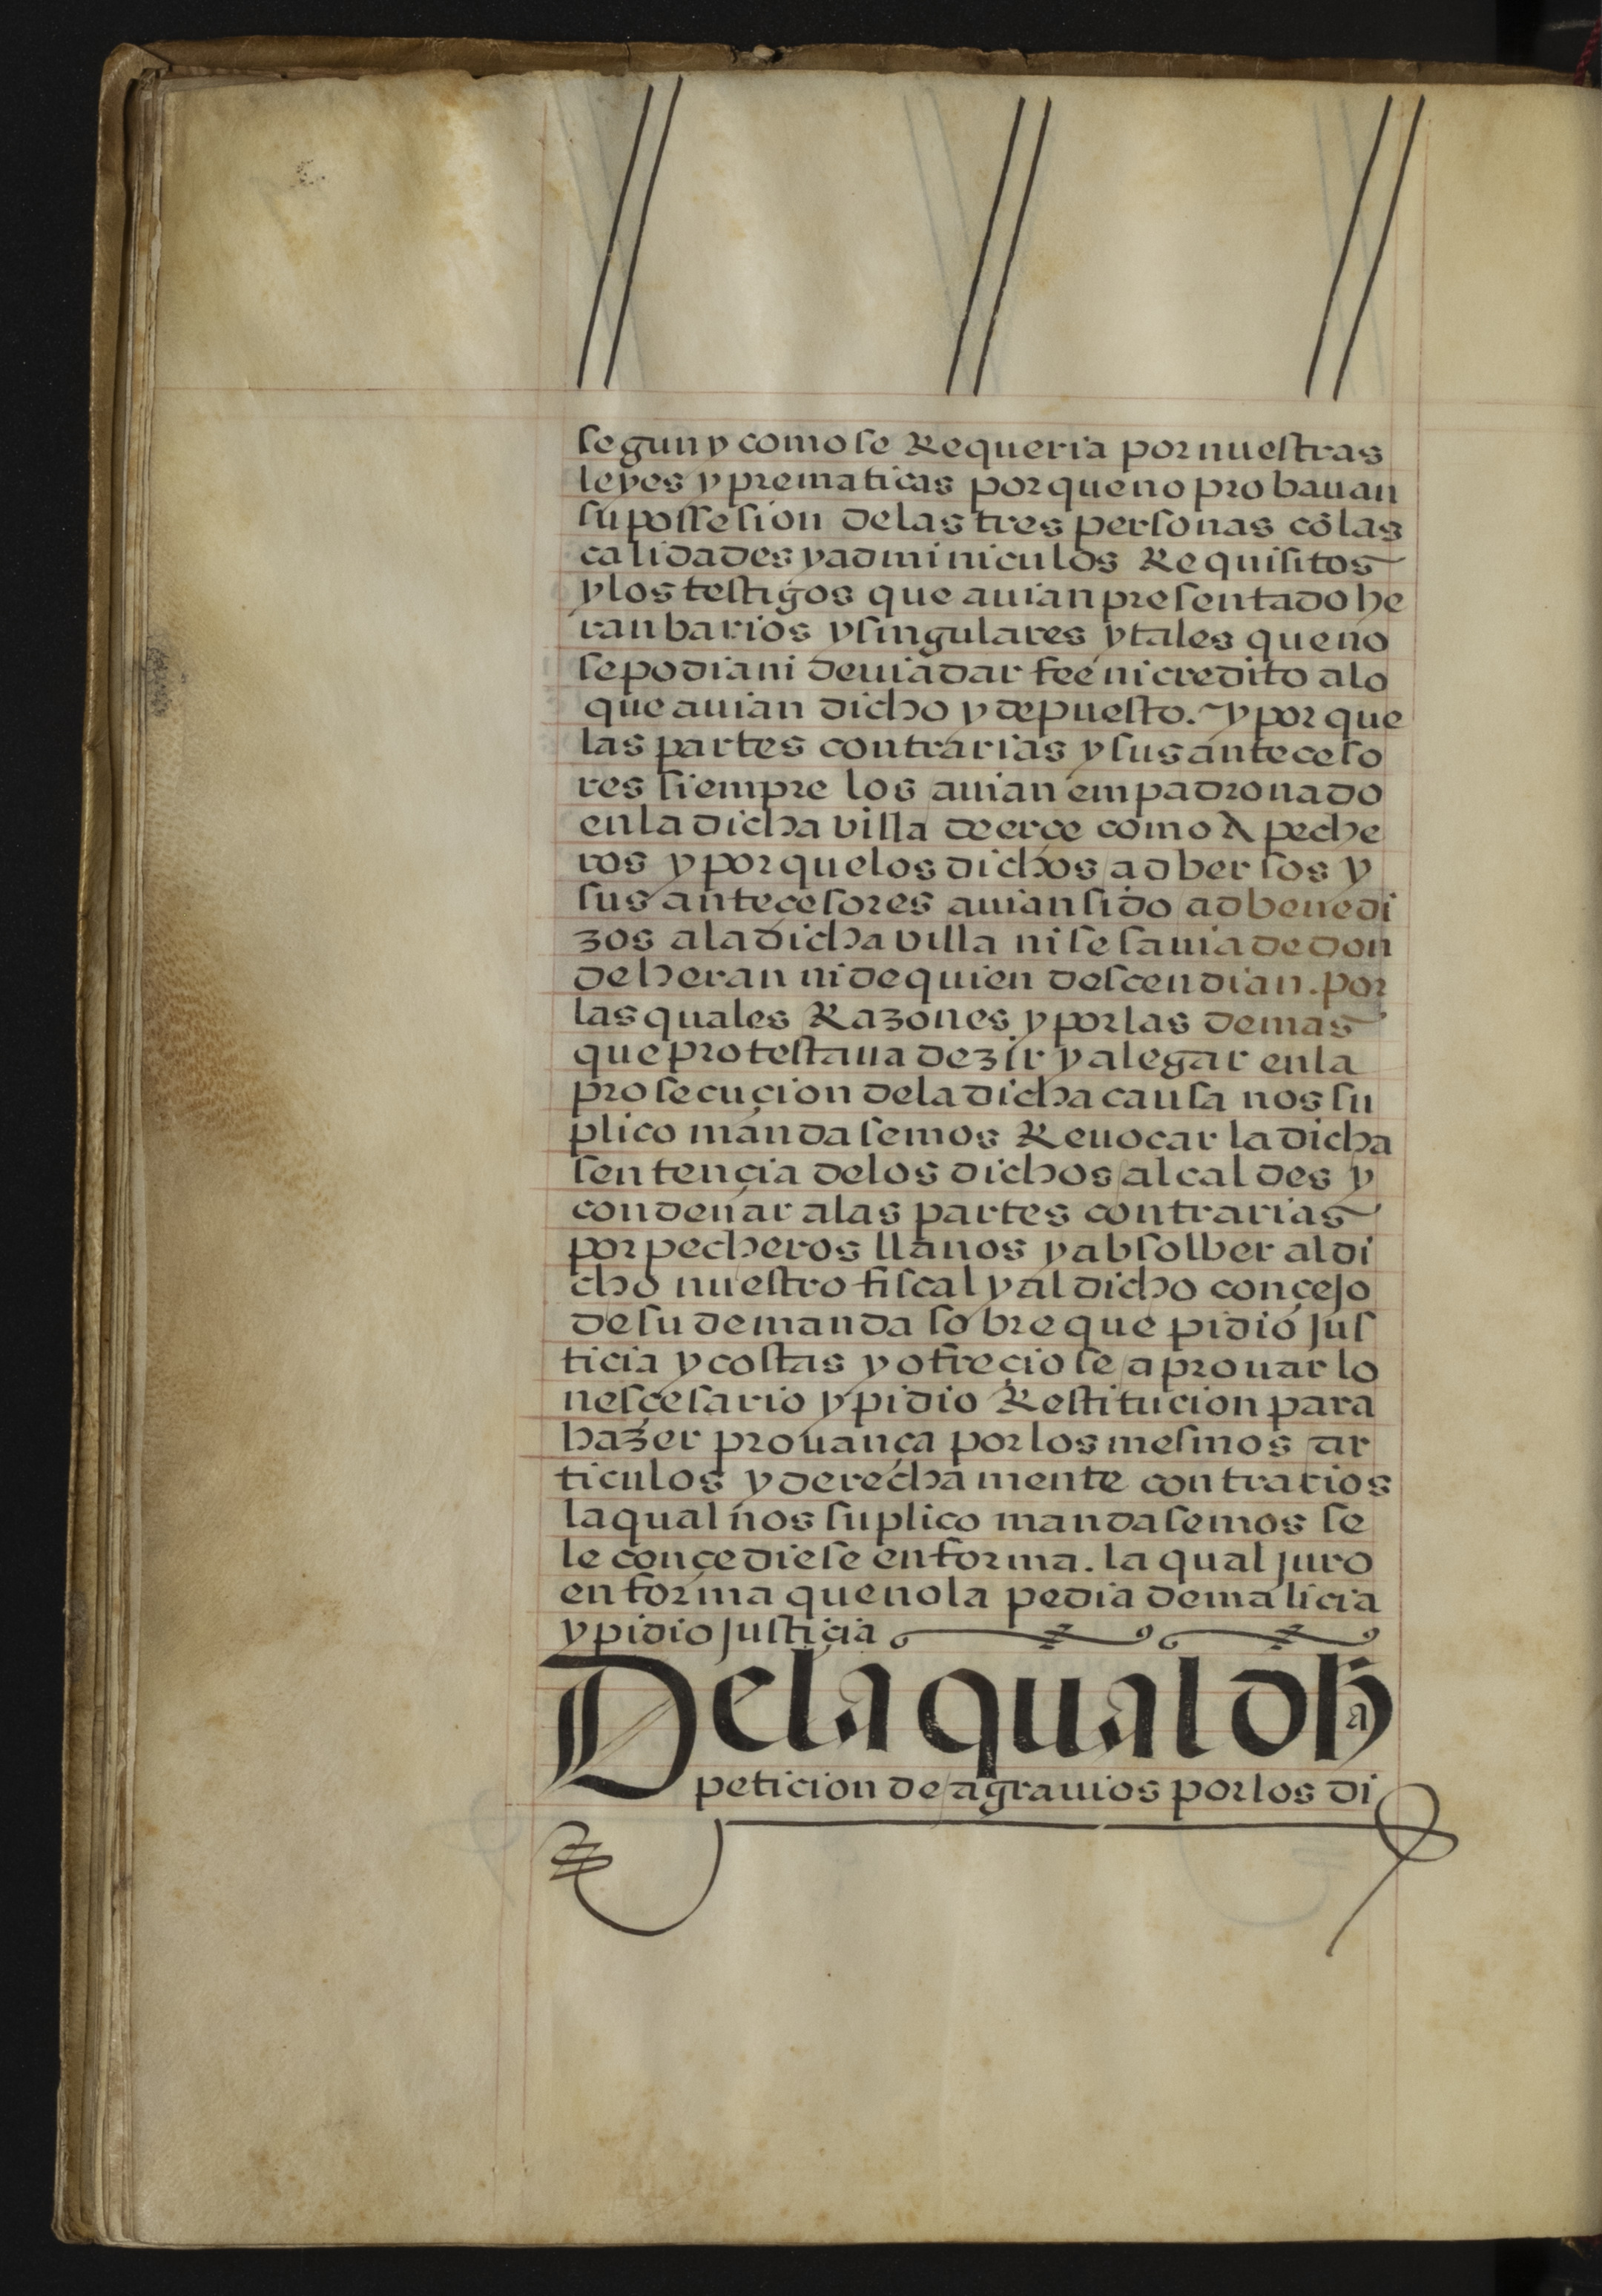 segun y como se Requeria por nuestras
leyes y prematicas porque no probauan
su possesion de las tres personas cõ las
calidades y adminiculos Requisitos
y los testigos que auian presentado he
ran barios y singulares y tales que no
se podia ni deuia dar fee ni credito a lo
que auian dicho y depuesto. y por que
las partes contrarias y sus anteceso
res siempre los auian empadronado
en la dicha villa de erçe como A peche
ros y porque los dichos adbersos y
sus anteçesores auian sido adbenedi
zos a la dicha villa ni se sauia de don
de heran ni de quien descendian. por
las quales Razones y por las demas
que protestaua dezir y alegar en la
prosecuçion de la dicha causa nos su
plico mandasemos Reuocar la dicha
sentençia de los dichos alcaldes y
condenar a las partes contrarias
por pecheros llanos y absolber al di
cho nuestro fiscal y al dicho conçejo
de su demanda sobre que pidio jus
ticia y costas y ofreçiose a prouar lo
nesçesario y pidio Restitucion para
hazer prouança por los mesmos ar
ticulos y derechamente contrarios
la qual nos suplico mandasemos se
le conçediese en forma. la qual juro
en forma que no la pedia de malicia
y pidio justiçia
De la qual dha
peticion de agrauios por los di